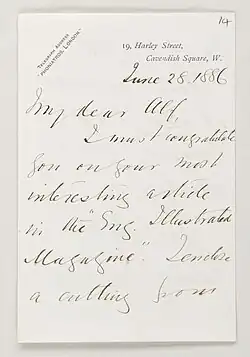 14
TELEGRAPH ADDRESS
"PHONIATROS, LONDON."
19, Harley Street,
Cavendish Square, W.
June 28. 1886
My dear Alf,
I must congratulate
you on your most
interesting article
in the "Eng. Illustrated
Magazine". I enclose
a cutting from